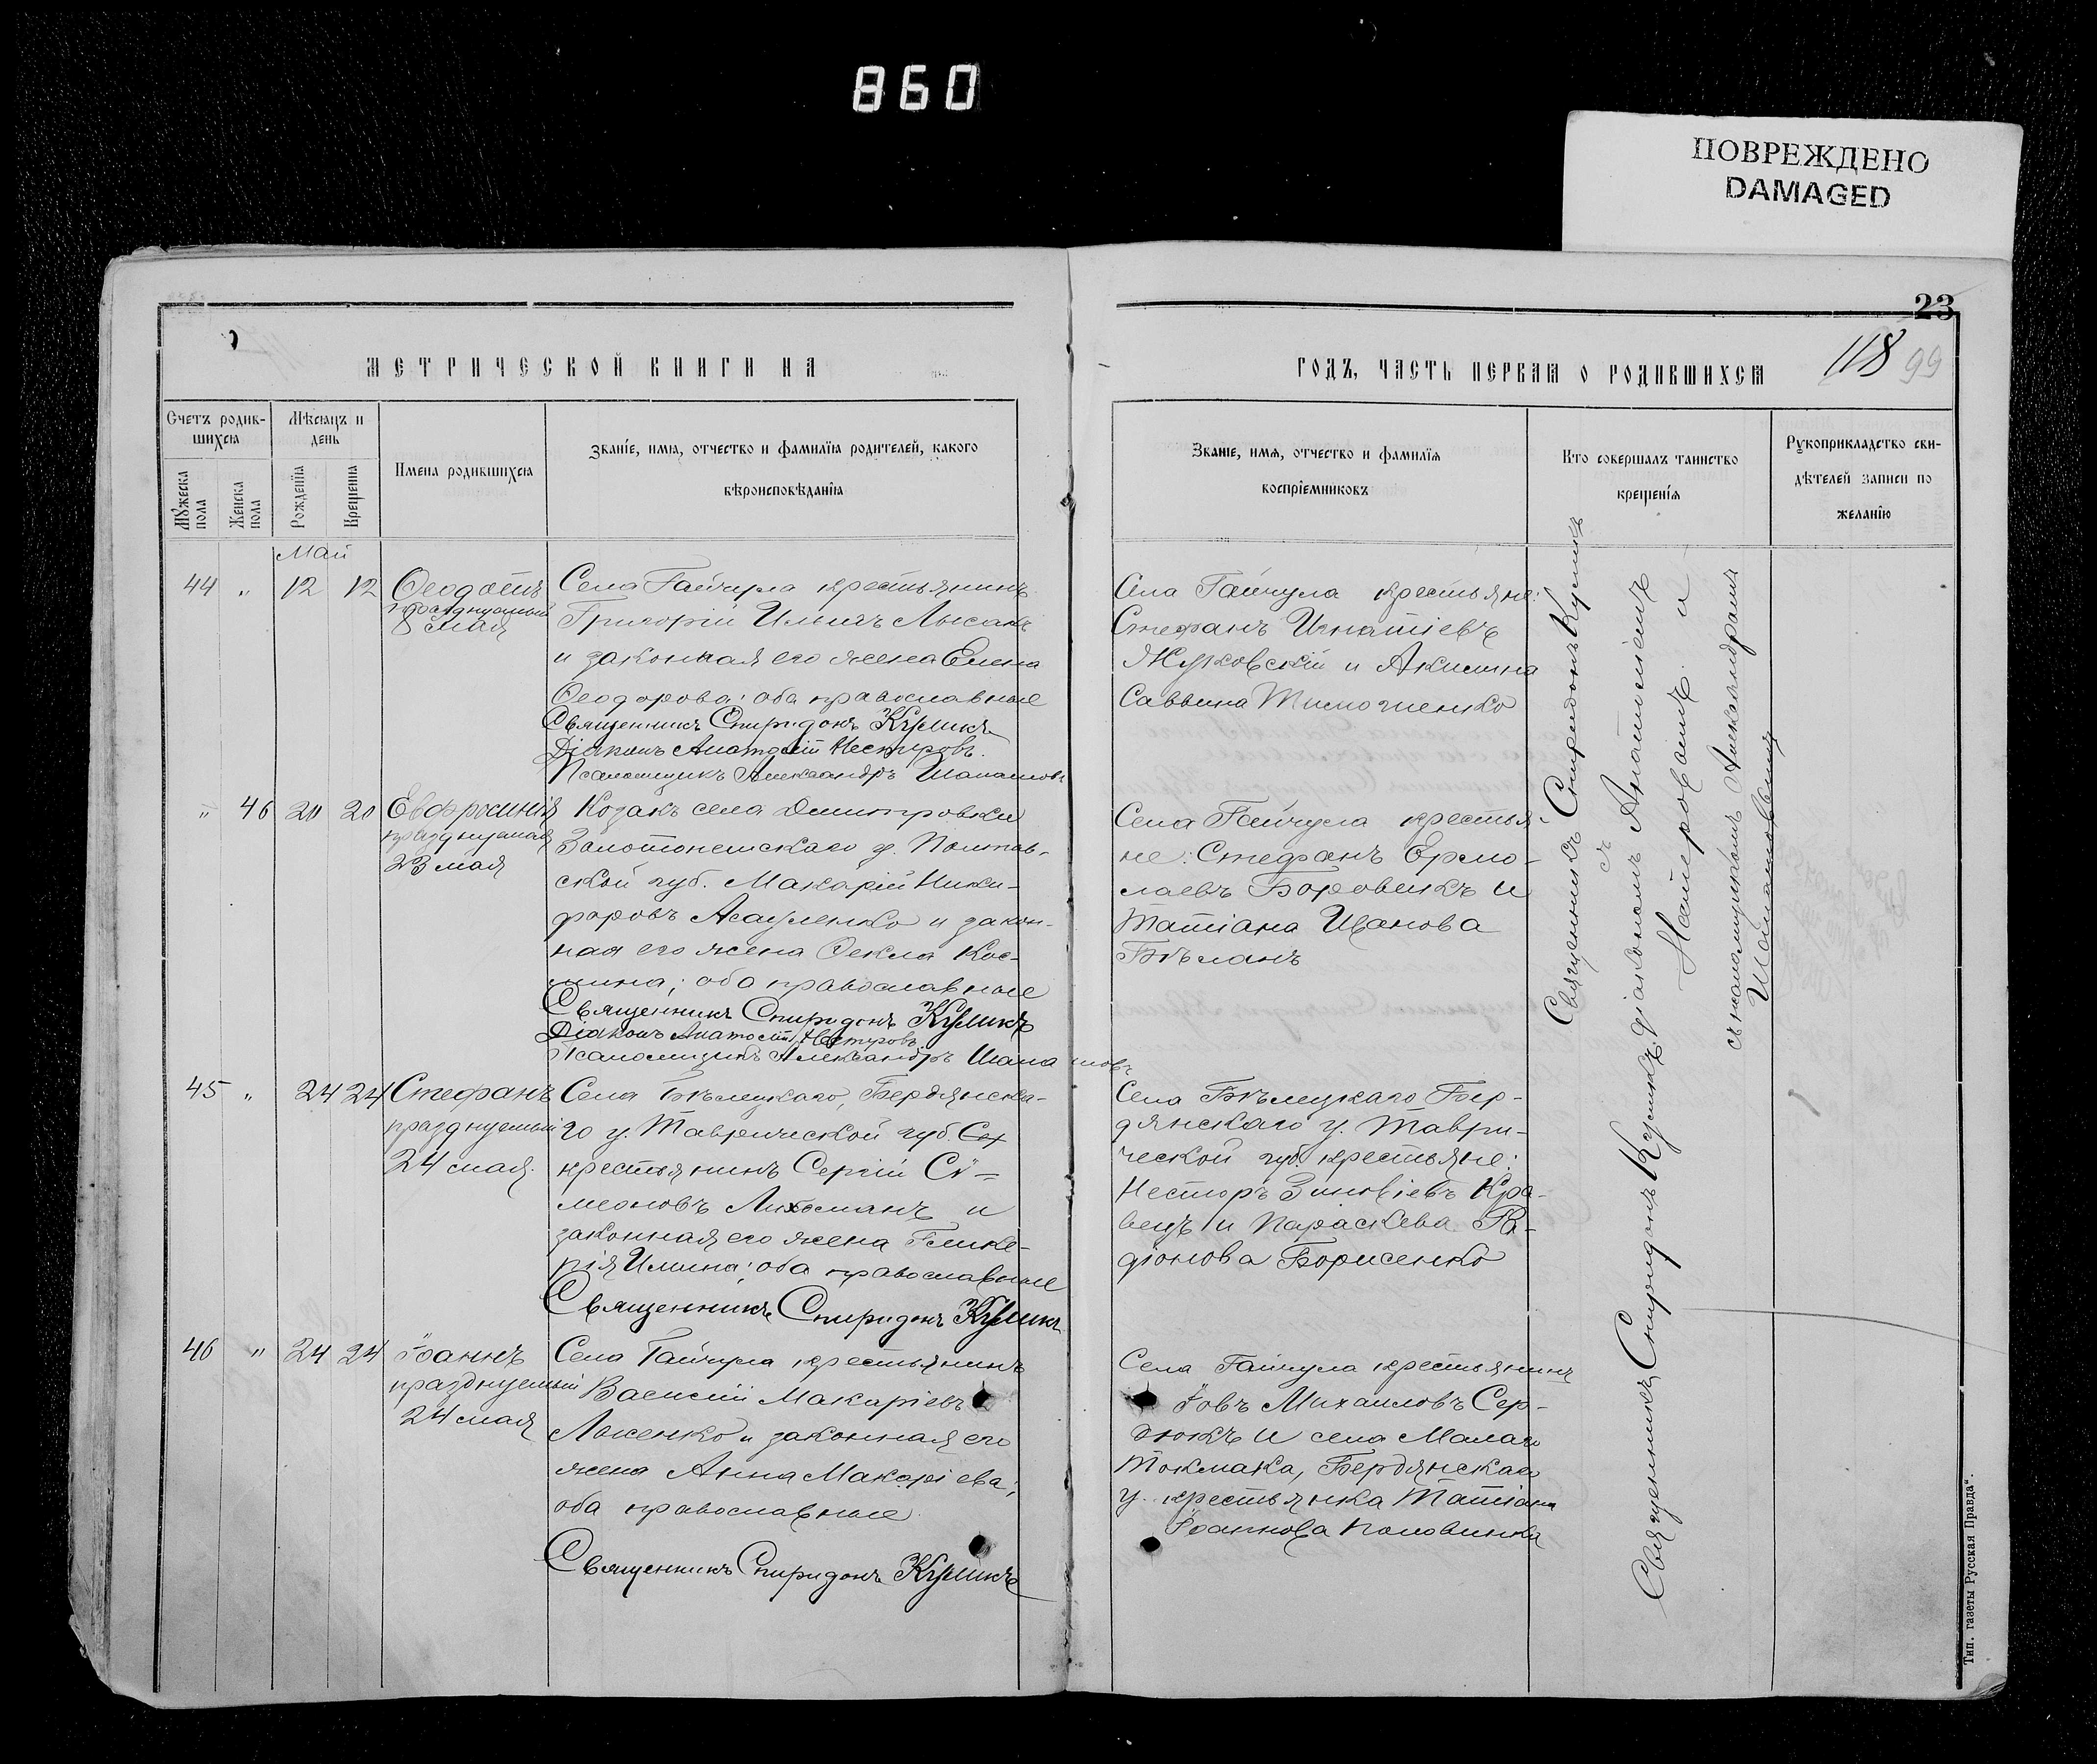 860
ПОВРЕЖДЕНО
DAMAGED
23
118 99
МЕТРИЧЕСКОЙ КНИГИ НА
ГОДЪ, ЧАСТЬ ПЕРВАЯ О РОДИВШИХСЯ
Счетъ родив-
шихся
Мужеска
пола
Женска
пола
Мѣсяцъ и
день
Рожденія
Крещенія
Имена родившихся
Званіе, имя, отчество и фамилія родителей, какого
вѣроисповѣданія
Званіе, имя, отчество и фамилія
воспріемниковъ
Кто совершалъ таинство
крещенія
Рукоприкладство сви-
дѣтелей записи по
желанію
Май
44 " 12 12
Ѳеодотъ
празднуемый
8 мая
Села Гайчула крестьянинъ
Григорій Ильичъ Лысакъ
и законная его жена Елена
Ѳеодорова; оба православные
Священникъ Спиридонъ Куликъ
Діаконъ Анатолій Нестеровъ.
Псаломщикъ Александръ
Села Гайчула крестьяне:
Стефанъ Игнатіевъ
Жуковскій и Акилина
Саввина Тимошенко
" 46 20 20
Евфросинія
празднуемая
23 мая
Козакъ села Димитровки
Золотоношскаго у. Полтав-
ской губ. Макарій Ники-
форовъ Асауленко и закон-
ная его жена Ѳекла Кос-
мина; оба православные
Священникъ Спиридонъ Куликъ
Діаконъ Анатолій Нестеровъ
Псаломщикъ Александръ
Села Гайчула крестья-
не: Стефанъ Ермо-
лаевъ Боровикъ и
Татіана Иванова
Бѣланъ
45 " 24 24
Стефанъ
празднуемый
24 мая.
Села Бѣлецкаго, Бердянска-
го у. Таврической губ.
крестьянинъ Сергій Сѵ-
меоновъ Лихоманъ и
законная его жена Глике-
рія Илина; оба православные
Священникъ Спиридонъ Куликъ
Села Бѣлецкаго Бер-
дянскаго у. Таври-
ческой губ. крестьяне:
Несторъ Зиновіевъ Кра-
вецъ и Параскева Ра-
діонова Борисенко
46 " 24 24
Іоаннъ
празднуемый
24 мая
Села Гайчула крестьянинъ
Василій Макаріевъ
и законная его
жена Анна Макаріева;
оба православные
Священникъ Спиридонъ Куликъ
Села Гайчула крестьянинъ
Іовъ Михаиловъ Сер-
дюкъ и села Малаго
Токмака, Бердянскаго
у. крестьянка Татіана
Іоаннова Половинка
Священникъ Спиридонъ Куликъ
съ
діакономъ Анатоліемъ
Нестеровымъ и
съ псаломщикомъ Александромъ
Священникъ Спиридонъ Куликъ.
Тип. газеты Русская Правда".